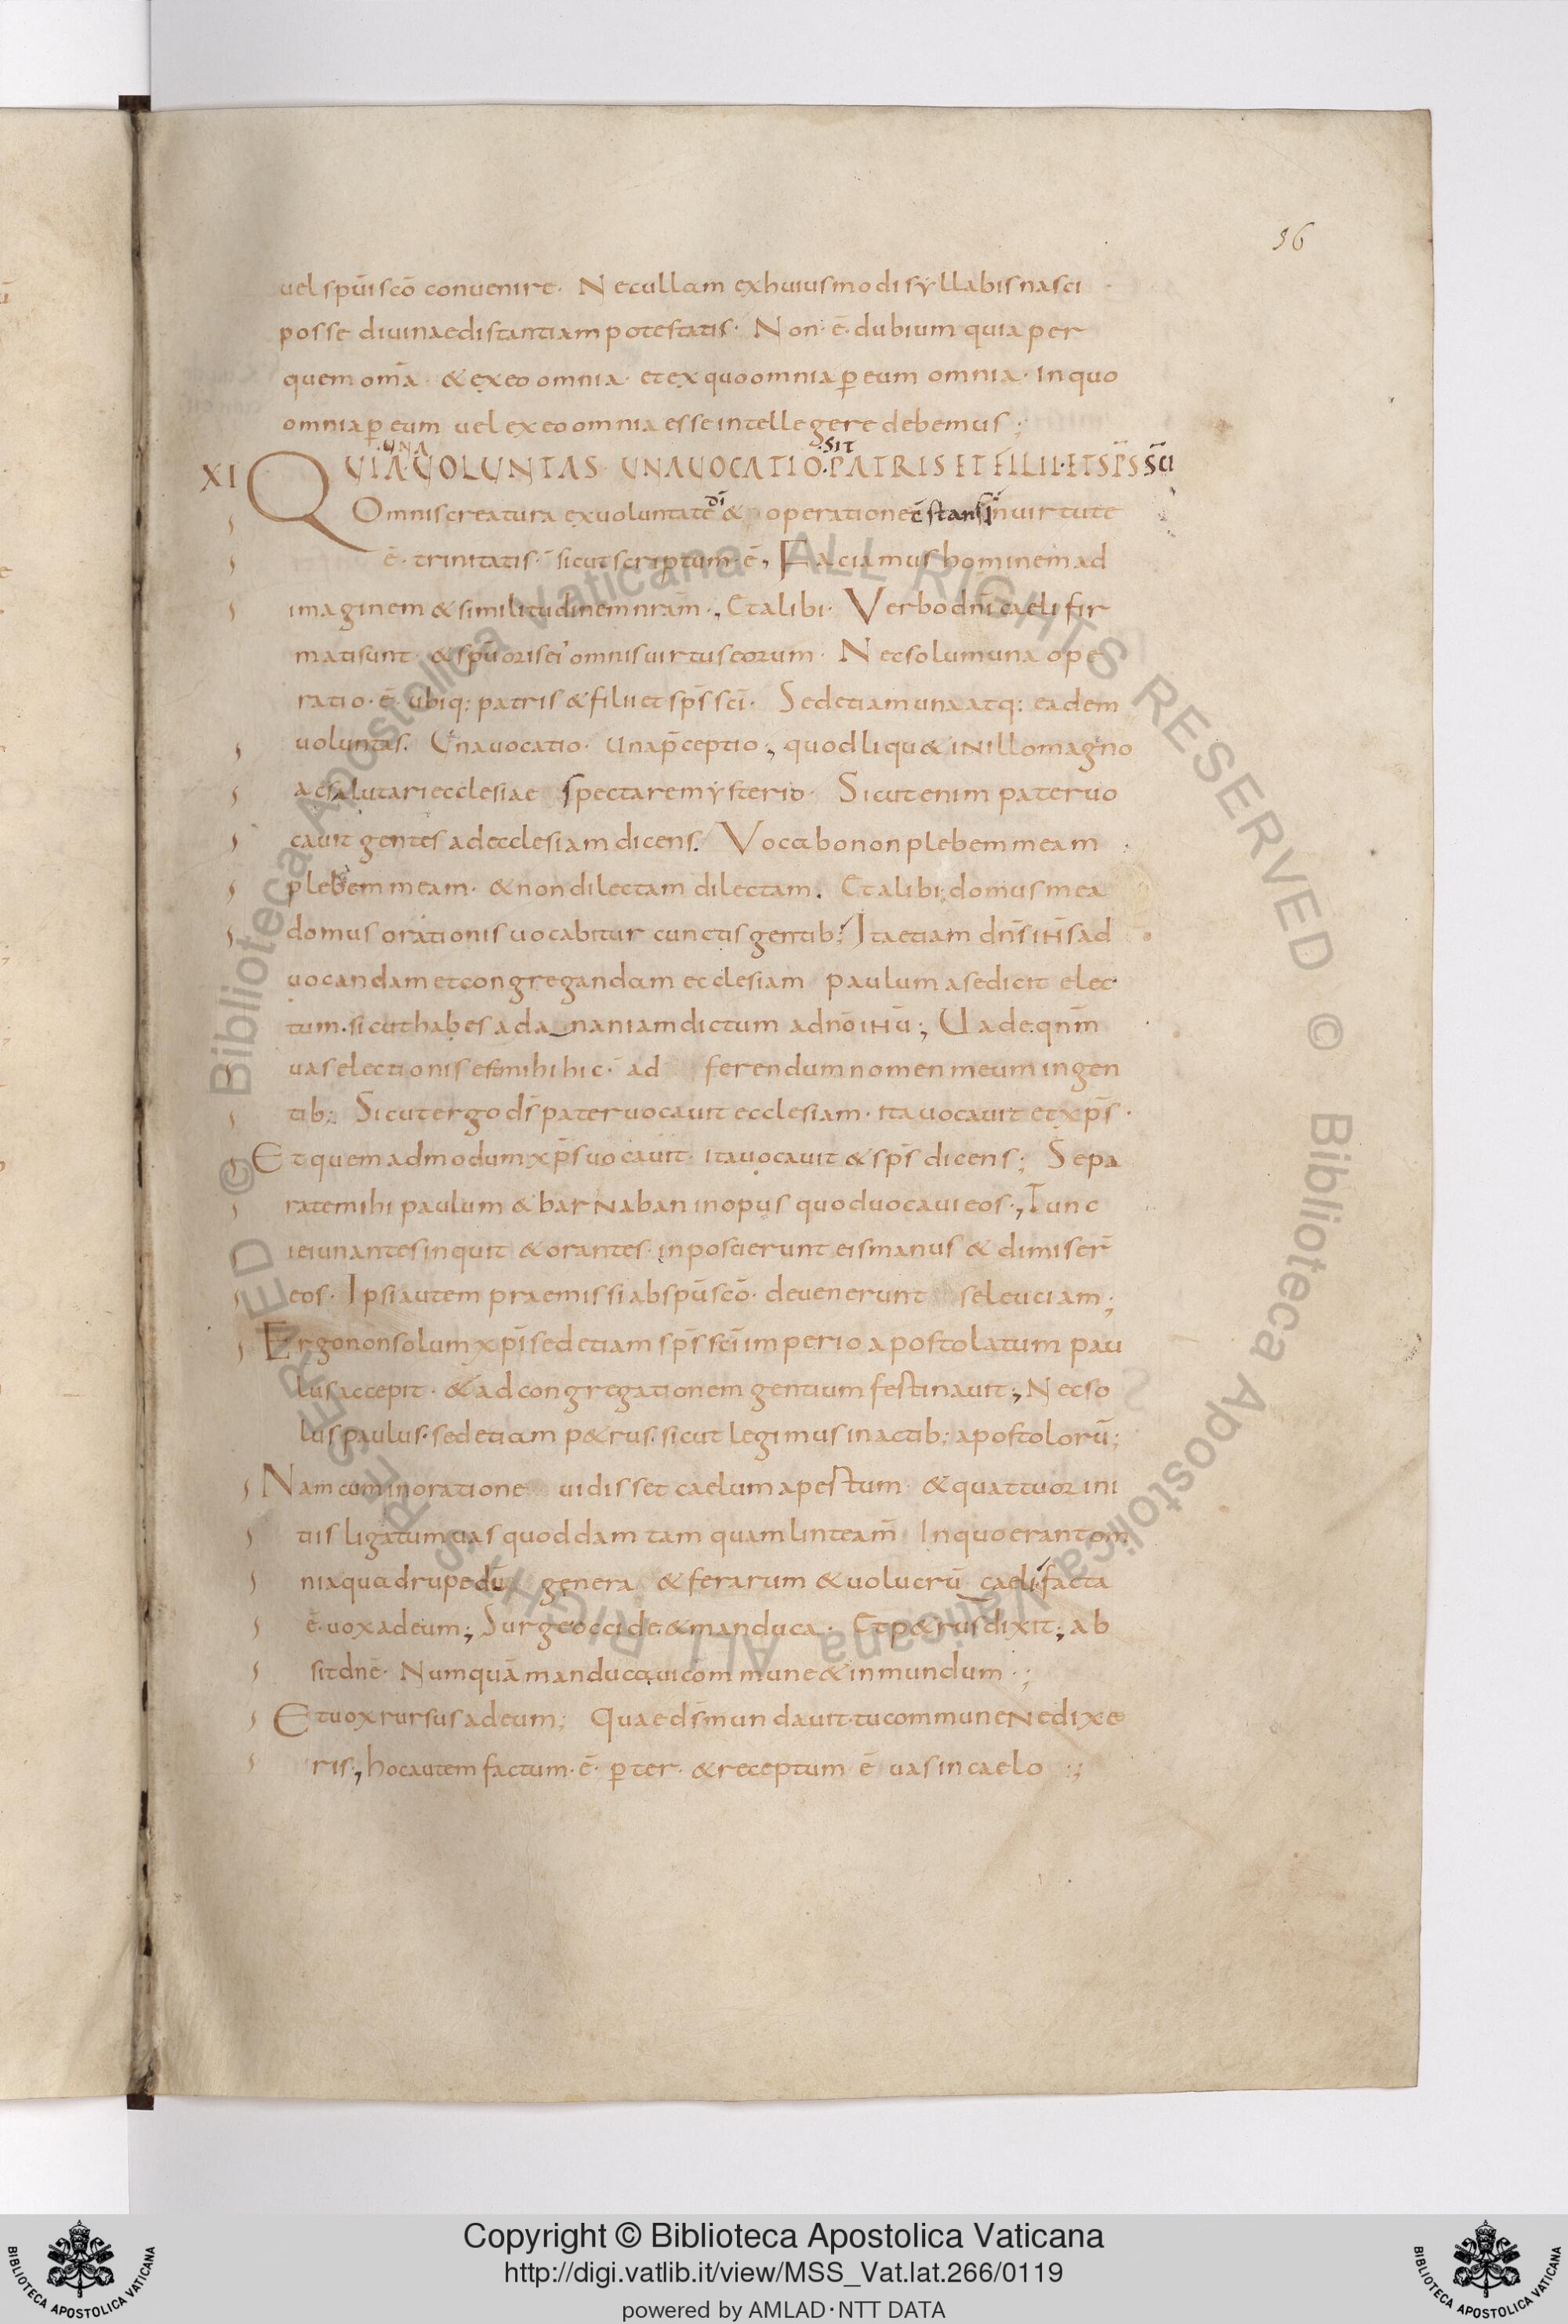 56
uel spūi scō conuenire· Nec ullam ex huiusmodi syllabis nasci
posse diuinae distantiam potestatis· Non·ē·dubium quia per
quem om̄a· & ex eo omnia· et ex quo omnia p̄ eum omnia· In quo
omnia p̄ eum uel ex eo omnia esse intellegere debemus;
·UNA ·SIT
XI QUIA·UOLUNTAS· UNA UOCATIO·PATRIS ET FILII·ET SP̄S SC̄I
Omnis creatura ex uoluntate dī & operatione ē stans in uirtute
ē· trinitatis· sicut scriptum·ē, Faciamus hominem ad
imaginem & similitudinem nram̄·, Et alibi· Verbo dnī caeli fir
mati sunt· & spū oris ei' omnis uirtus eorum· Nec solum una ope
ratio·ē·ubiq: patris & filii et sp̄s scī· Sed etiam una atq: eadem
uoluntas. Una uocatio· Una p̄ceptio·, quod liqu& iN illo magno
ac salutari ecclesiae spectare mysterio· Sicut enim pater uo
cauit gentes ad ecclesiam dicens. Vocabo non plebem meam
plebem meam· & non dilectam dilectam. Et alibi; domus mea
domus orationis uocabitur cunctis gentib; Ita etiam dn̄s iHs̄ ad
uocandam et congregandam ecclesiam paulum a se dicit elec
tum·sicut habes ad a_naniam dictum a dnō iHū; Uade·qnm̄
uas electionis est mihi hic· ad ferendum nomen meum in gen
tib; Sicut ergo ds̄ pater uocauit ecclesiam· ita uocauit et xps̄·
Et quemadmodum xps̄ uocauit· ita uocauit & sp̄s dicens; Sepa
rate mihi paulum & barNaban in opus quod uocaui eos·, Tunc
ieiunantes inquit & orantes· inposuerunt eis manus & dimiser̄
eos· Ipsi autem praemissi ab spū scō· deuenerunt seleuciam;
Ergo non solum xpī sed etiam sp̄s scī imperio apostolatum pau
lus accepit· & ad congregationem gentium festinauit·, Nec so
lus paulus·sed etiam p&rus·sicut legimus in actib; apostolorū;
Nam cum in oratione uidisset caelum apertum· & quattuor ini
tiis ligatum uas quoddam tam quam linteam̄ In quo erant om
nia quadrupedū genera & ferarum & uolucrū caeli·facta
ē·uox ad eum; Surge occide·&manduca· Et p&rus dixit; ab
sit dnē· Numquā manducaui commune & inmundum·;
Et uox rursus ad eum; Quae ds̄ mundauit·tu commune Ne dixe
ris·, hoc autem factum·ē· p̄ ter· & receptum ē uas in caelo·;
Copyright © Biblioteca Apostolica Vaticana
http://digi.vatlib.it/view/MSS_Vat.lat.266/0119
powered by AMLAD·NTT DATA
© Biblioteca Apostolica Vaticana ALL RIGHTS RESERVED
© Biblioteca Apostolica Vaticana ALL RIGHTS RESERVED
BIBLIOTECA APOSTOLICA VATICANA
BIBLIOTECA APOSTOLICA VATICANA